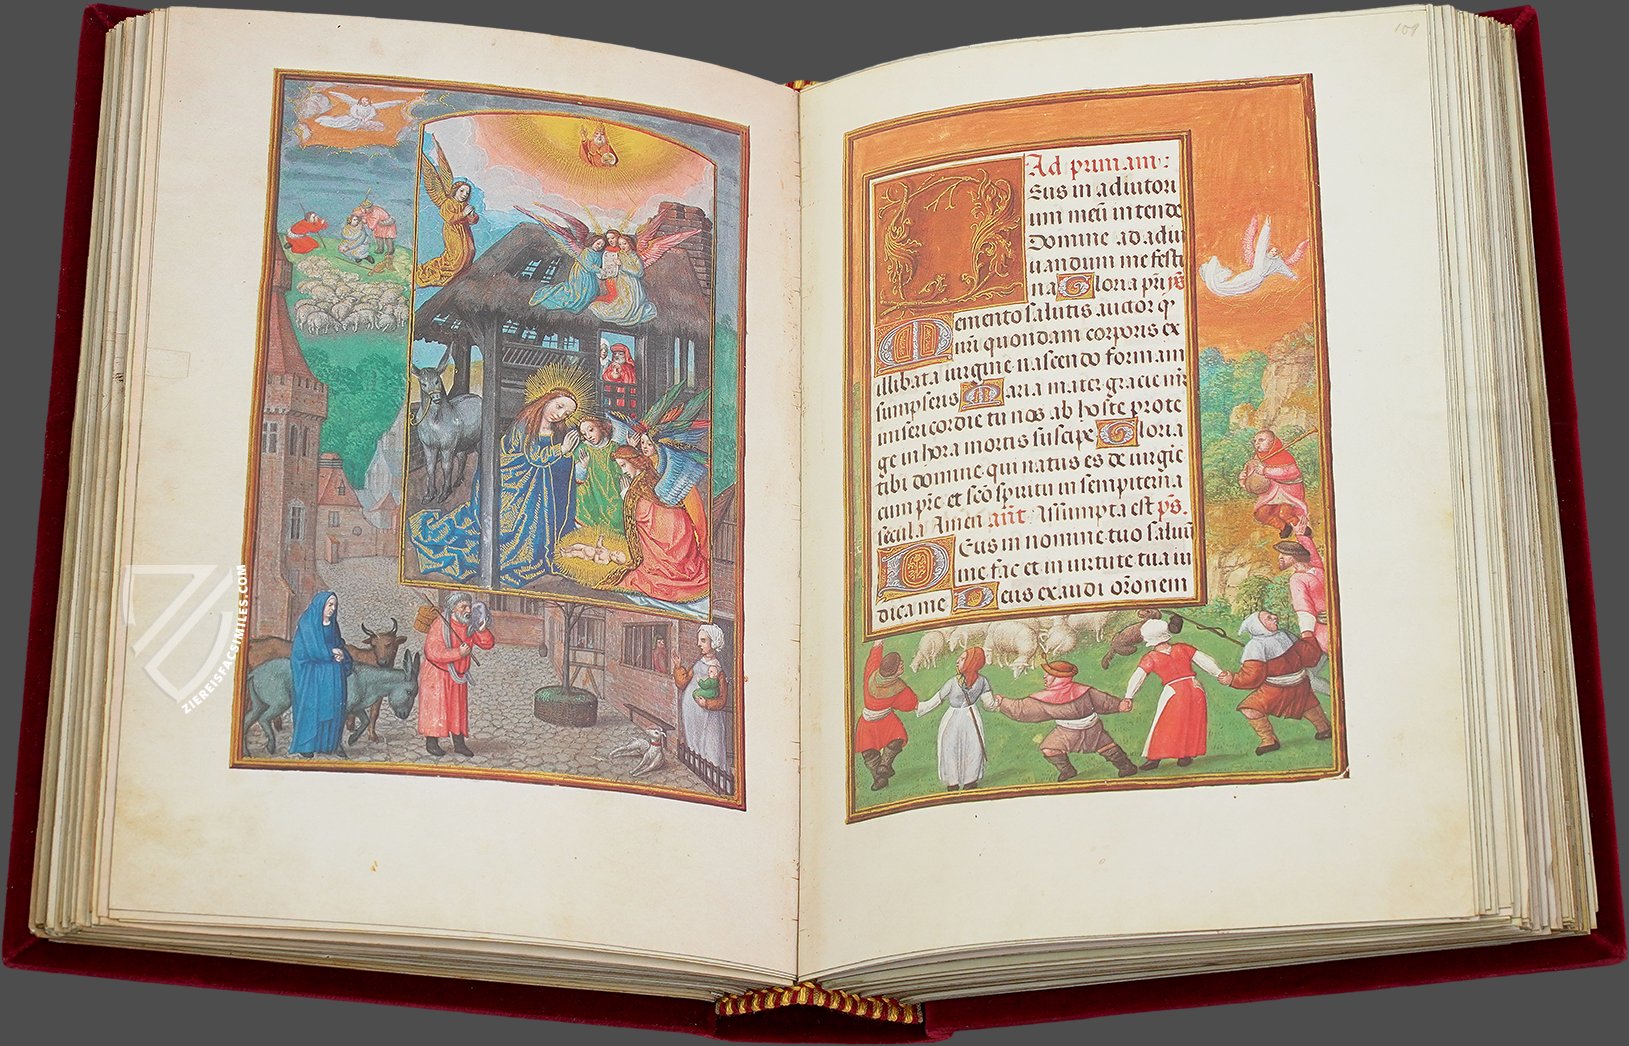 109
Ad primam:
Deus in adiutori
um meū intende
Domine ad adiu
uandum me festi
na Gloria pri ps̄
Memento salutis auctor qͥ
nr̄i quondam corporis ex
illibata uirgine nascendo formam
sumpseris Maria mater gracie mr̄
misericordie tu nos ab hoste prote
ge in hora mortis suscipe Gloria
tibi domine qui natus es de uirgīe
cum pr̄e et sc̄o spiritu in sempiterna
secula Amen añt Assumpta est p̄s.
Deus in nomine tuo saluū
me fac et in uirtute tua iu
dica me Deus exaudi or̄onem
ZIEREISFACSIMILES.COM